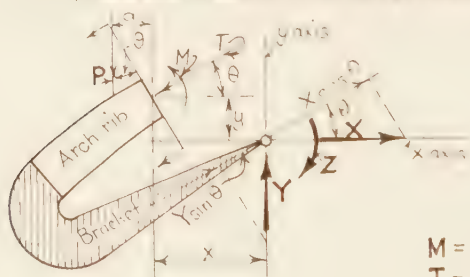 n
θ
P
M
T
θ
y axis
X cos θ
y
θ
X
x axis
Z
Arch rib
Bracket
Y sin θ
Y
x
M =
T =